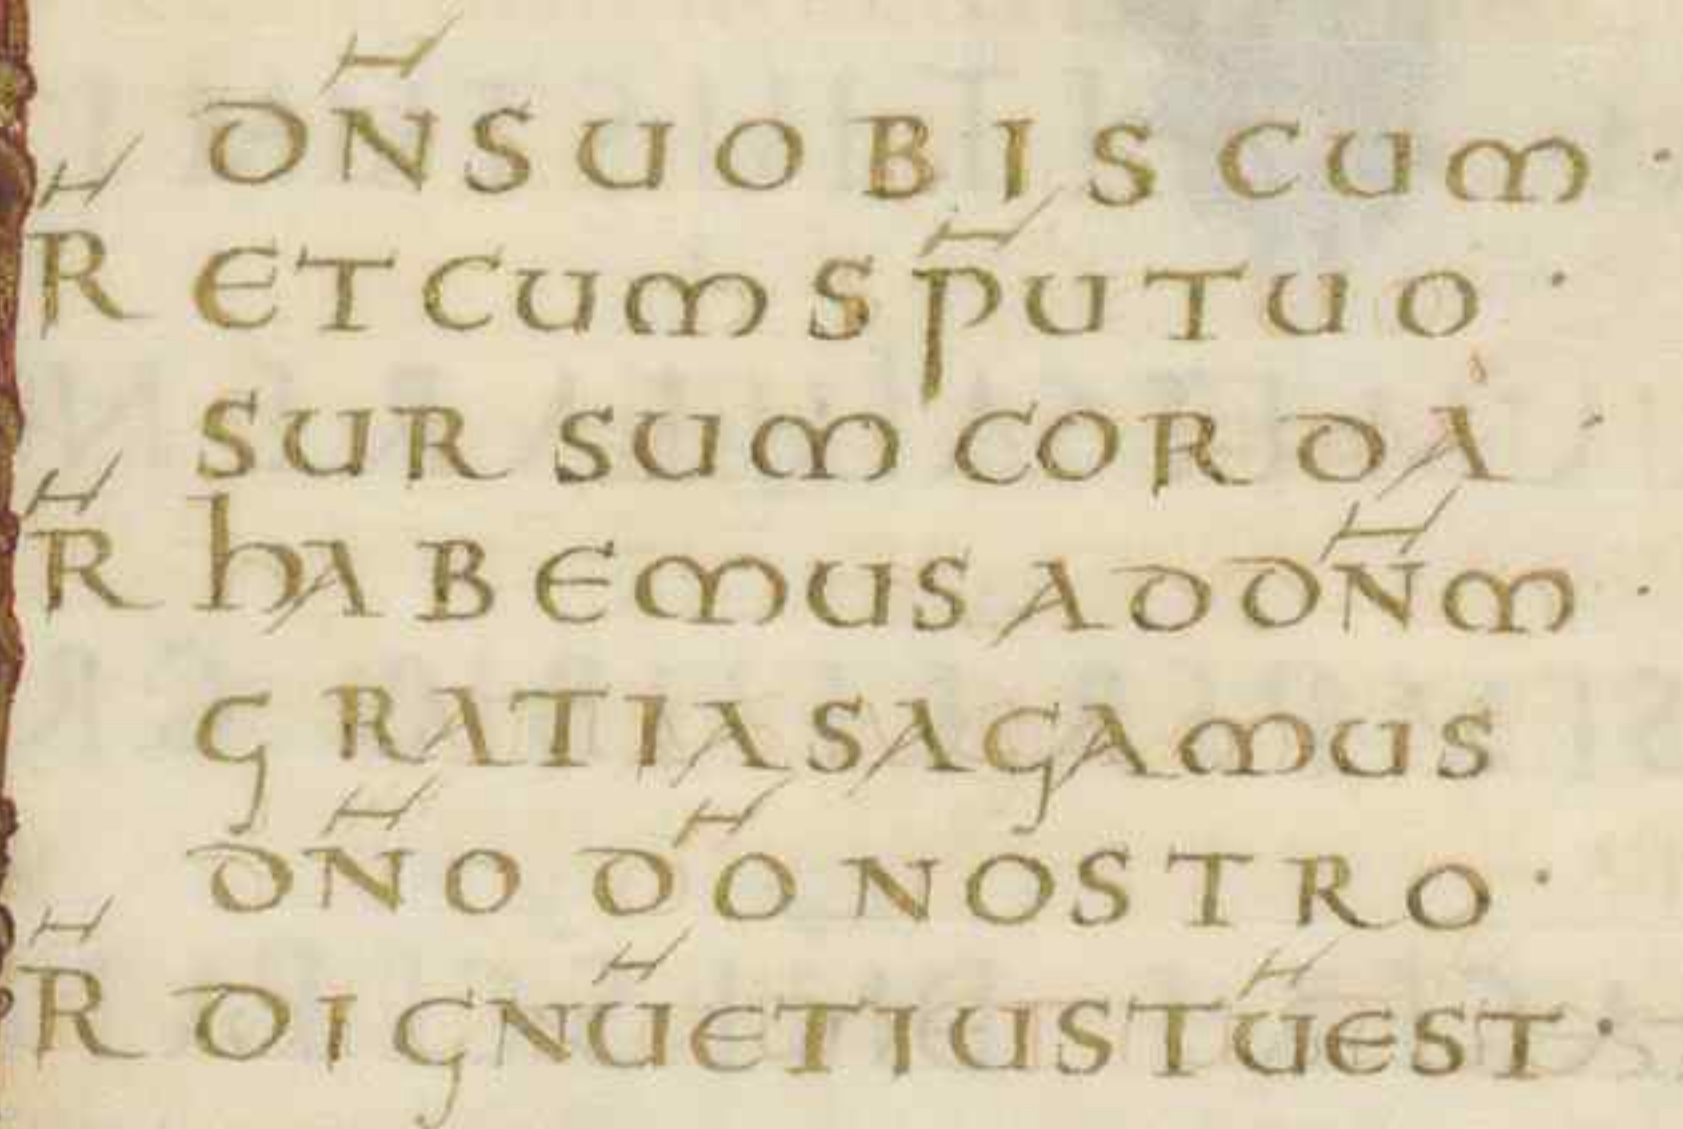 DN̄S UOBIS CUM ·
R̄ ET CUM SP̄U TUO ·
SURSUM CORDA ·
R̄ hABEMUS AD DN̄M ·
GRATIAS AGAMUS
DN̄O D̄O NOSTRO ·
R̄ DIGNŪ ET IUSTŪ EST ·